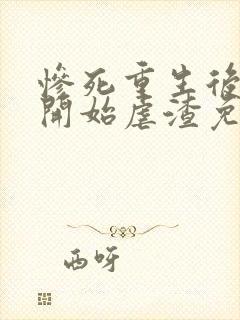 慘死重生後
開始虐渣免
西呀